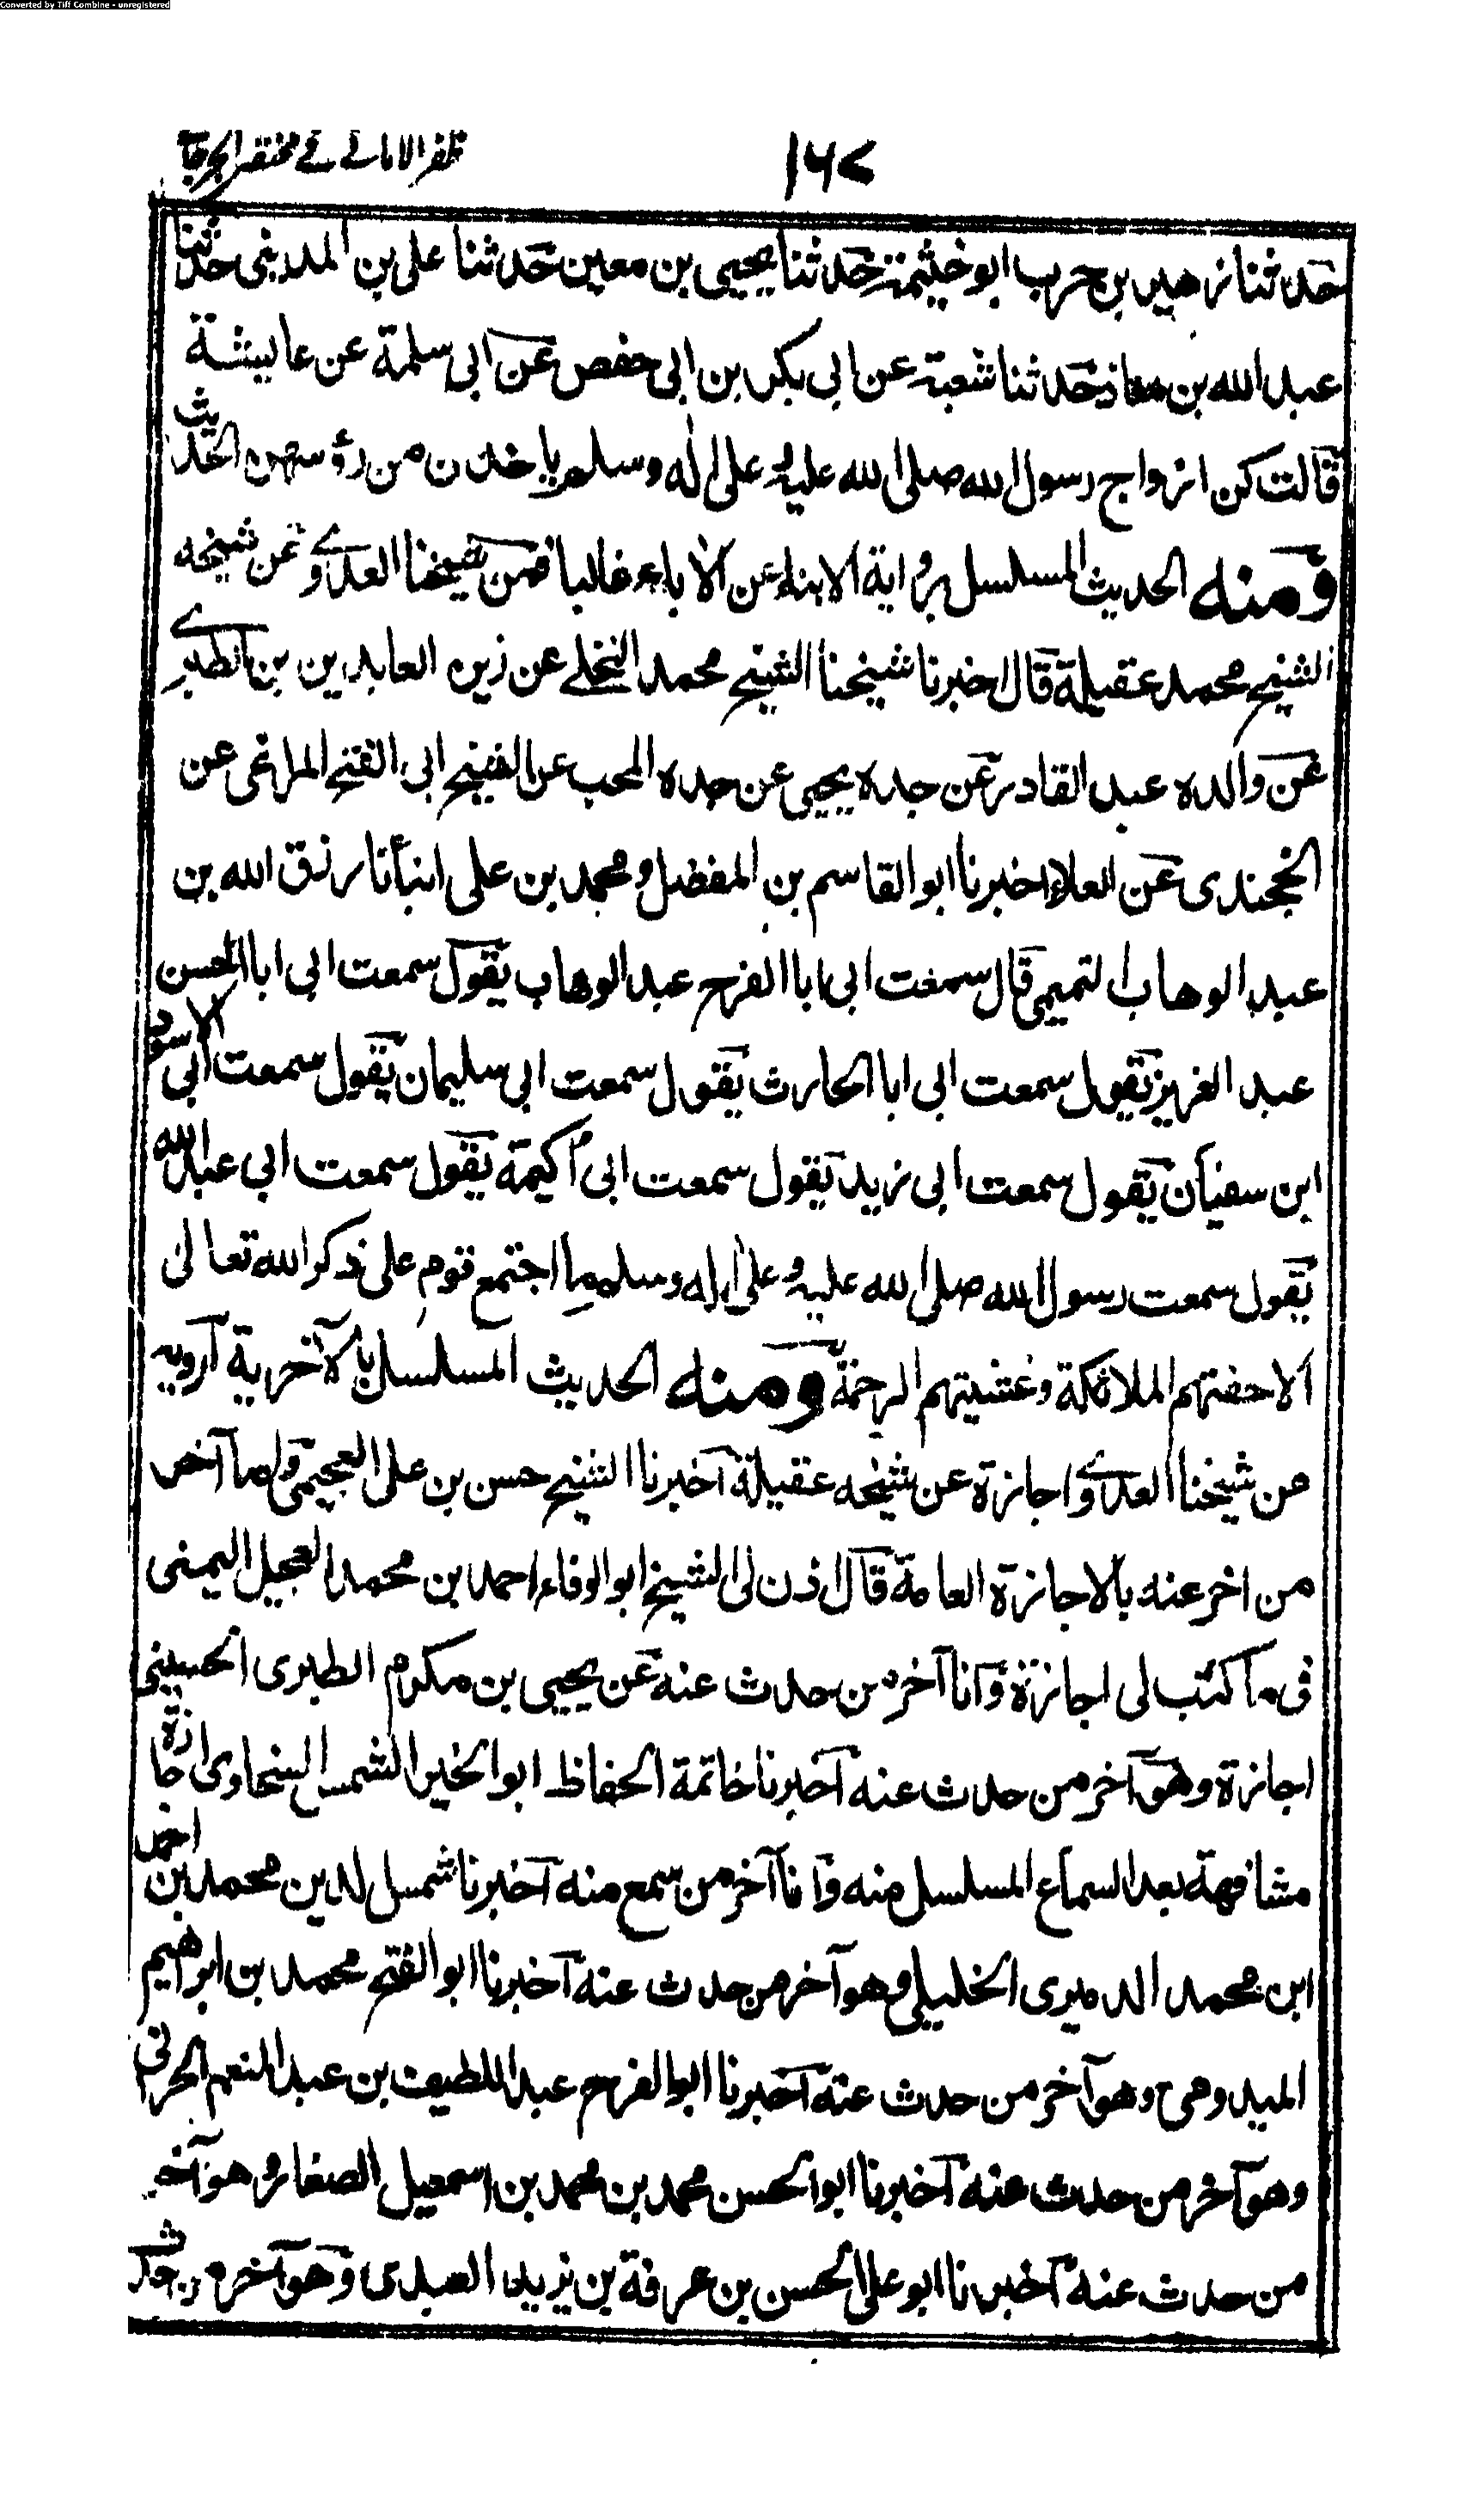 Converted by Tiff Combine - unregistered
ظفر الامانے فے مختصر الجرجا
١٦٧
حدثنا زهير بن حرب ابو خيثمة حدثنا يحيى بن معين حدثنا على بن المدينى حدثنا
عبد الله بن معاذ حدثنا شعبة عن ابى بكر بن ابى حفص عن ابى سلمة عن عايشة
قالت كن ازواج رسول الله صلى الله عليه وعلى اله وسلم ياخذن من رؤسهن الحديث
ومنه الحديث المسلسل برواية الابناء عن الاباء غالبا فمن شيخنا العداوے عن شيخه
الشيخ محمد عقيلة قال اخبرنا شيخنا الشيخ محمد النخلے عن زين العابدين بن الطبرے
عن والده عبد القادر عن جده يحيى عن جده المحب عن الشيخ ابى الفتح المراغى عن
الخجندى عن العلاء اخبرنا ابو القاسم بن المفضل ومحمد بن على انبأنا رزق الله بن
عبد الوهاب التميمى قال سمعت ابى ابا الفرح عبد الوهاب يقول سمعت ابى ابا الحسن
عبد العزيز يقول سمعت ابى ابا الحارث يقول سمعت ابى سليمان يقول سمعت ابى الاسود
ابن سفيان يقول سمعت ابى يزيد يقول سمعت ابى اكيمة يقول سمعت ابى عبد الله
يقول سمعت رسول الله صلى الله عليه وعلى اله وسلم ما اجتمع قوم على ذكر الله تعالى
الا حفتهم الملائكة وغشيتهم الرحمة ومنه الحديث المسلسل بالآخرية آرويه
من شيخنا العداوے اجازة عن شيخه عقيلة آخبرنا الشيخ حسن بن على العجيمى ولها آخر
من اخر عنه بالاجازة العامة قال اذن لى الشيخ ابو الوفاء احمد بن محمد العجيل اليمنى
فى ما كتب لى اجازة وآنا آخر من حدث عنه عن يحيى بن مكرم الطبرى الحسينى
اجازة وهو آخر من حدث عنه آخبرنا خاتمة الحفاظ ابو الخير الشمس السخاوى اجازة
مشافهة بعد السماع المسلسل منه وآنا آخر من سمع منه آخبرنا شمس الدين محمد بن احمد
ابن محمد الدميرى الخليلى وهو آخر من حدث عنه آخبرنا ابو الفتح محمد بن ابراهيم
الميدومى وهو آخر من حدث عنه آخبرنا ابو الفرح عبد اللطيف بن عبد المنعم الحرانى
وهو آخر من حدث عنه آخبرنا ابو الحسن محمد بن محمد بن اسمعيل الصفار وهو آخر
من حدث عنه آخبرنا ابو على الحسن بن عرفة بن يزيد العبدى وهو آخر من حدث